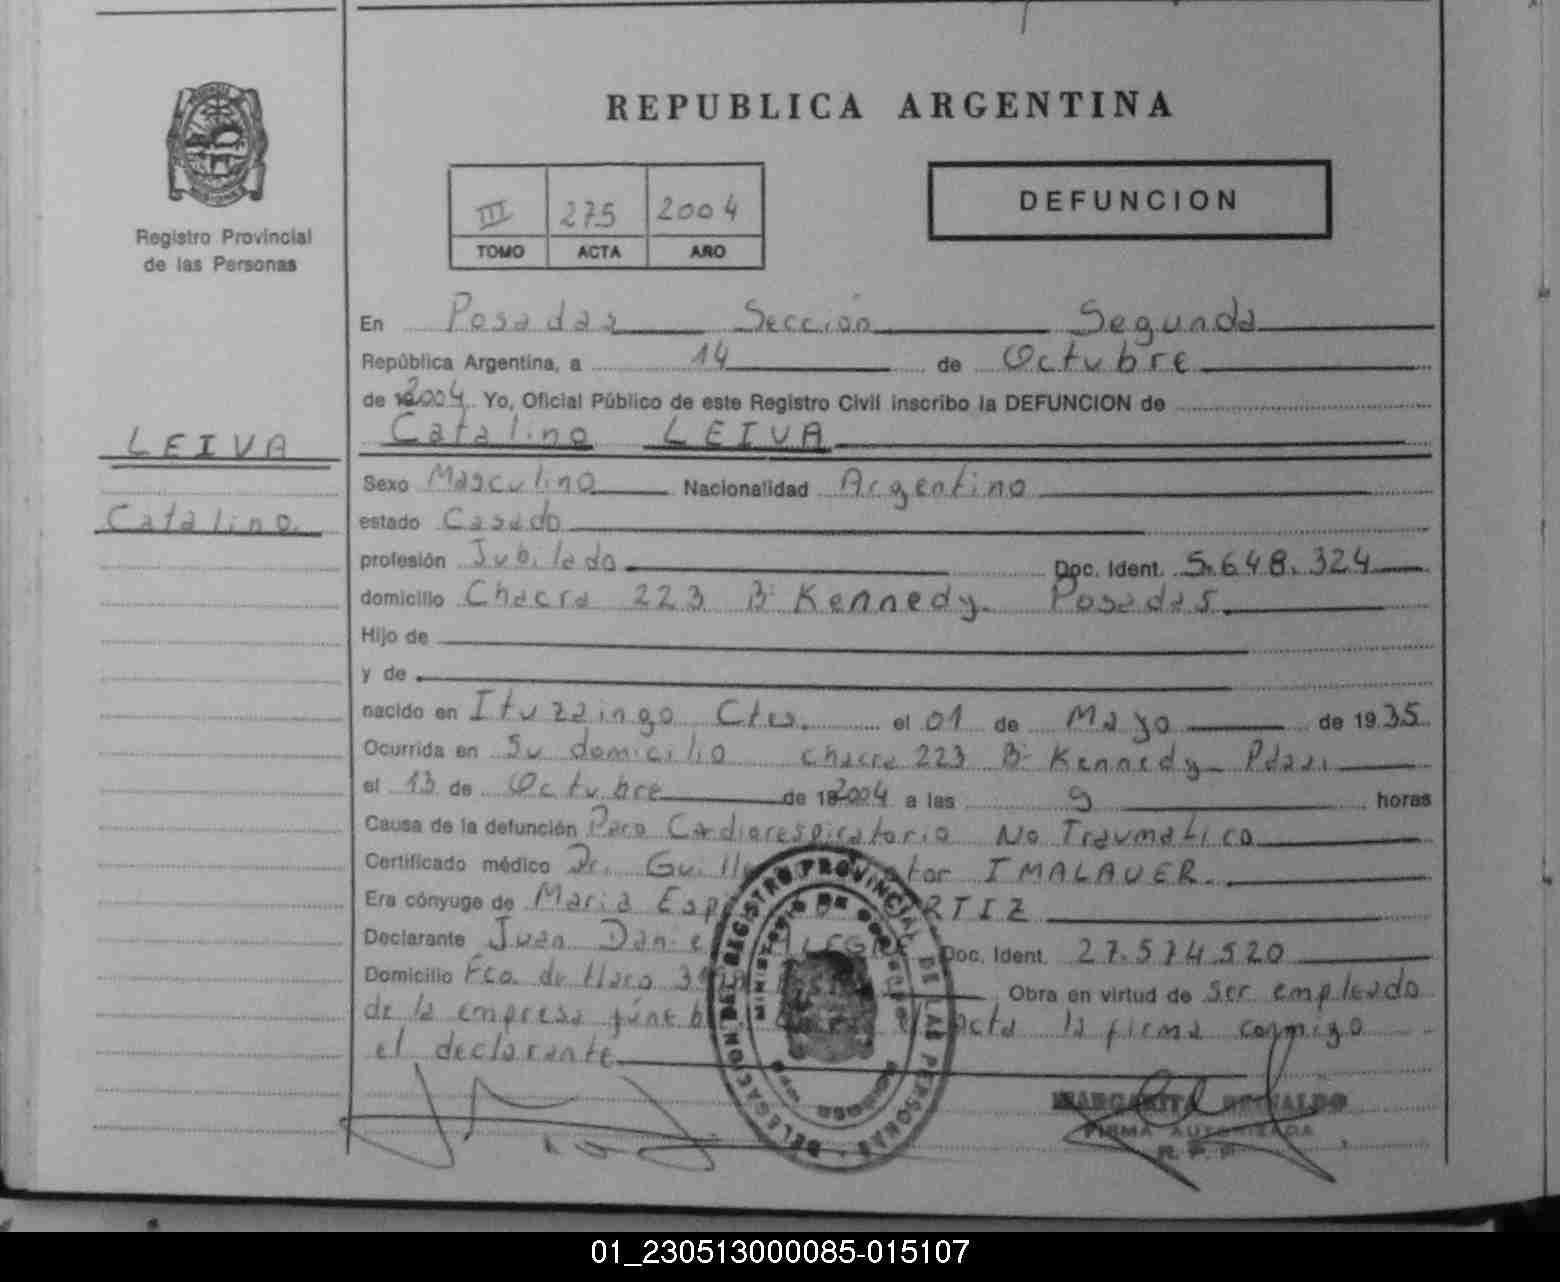 REPUBLICA ARGENTINA
Registro Provincial
de las Personas
III 275 2004
TOMO ACTA AÑO
DEFUNCION
LEIVA
Catalino
En Posadas Sección Segunda
República Argentina, a 14 de Octubre
de 2004 Yo, Oficial Público de este Registro Civil inscribo la DEFUNCION de
Catalino LEIVA
Sexo Masculino Nacionalidad Argentino
estado Casado
profesión Jubilado Doc. Ident. 5.648.324
domicilio Chacra 223 Bº Kennedy. Posadas
Hijo de
y de
nacido en Ituzaingo Ctes. el 01 de Mayo de 1935
Ocurrida en Su domicilio chacra 223 Bº Kennedy Pdas.
el 13 de Octubre de 2004 a las 9 horas
Causa de la defunción Paro Cardiorespiratorio No Traumatico
Certificado médico Dr. IMALAUER.
Era cónyuge de Maria
Declarante Juan Doc. Ident. 27.574.520
Domicilio Fco. de Haro Obra en virtud de Ser empleado
de la empresa acta la firma conmigo
el declarante
DELEGACION DEL REGISTRO PROVINCIAL DE LAS PERSONAS
MINISTERIO DE GOBIERNO
MARGARITA REINALDO
FIRMA AUTORIZADA
R. P. P.
01_230513000085-015107